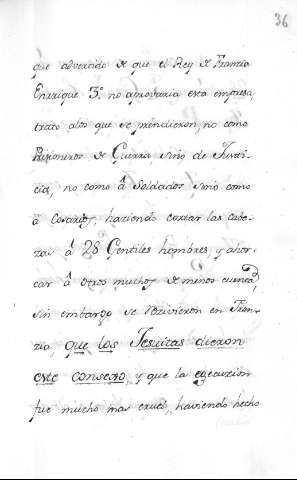 36
que advertido de que el Rey de Francia
Enrrique 3.º no aprovaria esta empresa,
trato alos que se rindieron, no como
Prisioneros de Guerra sino de Justi-
cia, no como â Soldados sino como
â Cosarios, haziendo cortar las cabe-
zas â 28 Gentiles hombres, y ahor-
car â otros muchos de menos cuenta,
sin embargo se
que los Jesuitas dieron
este consexo, y que la egecucion
fue mucho mas cruel, haviendo hecho